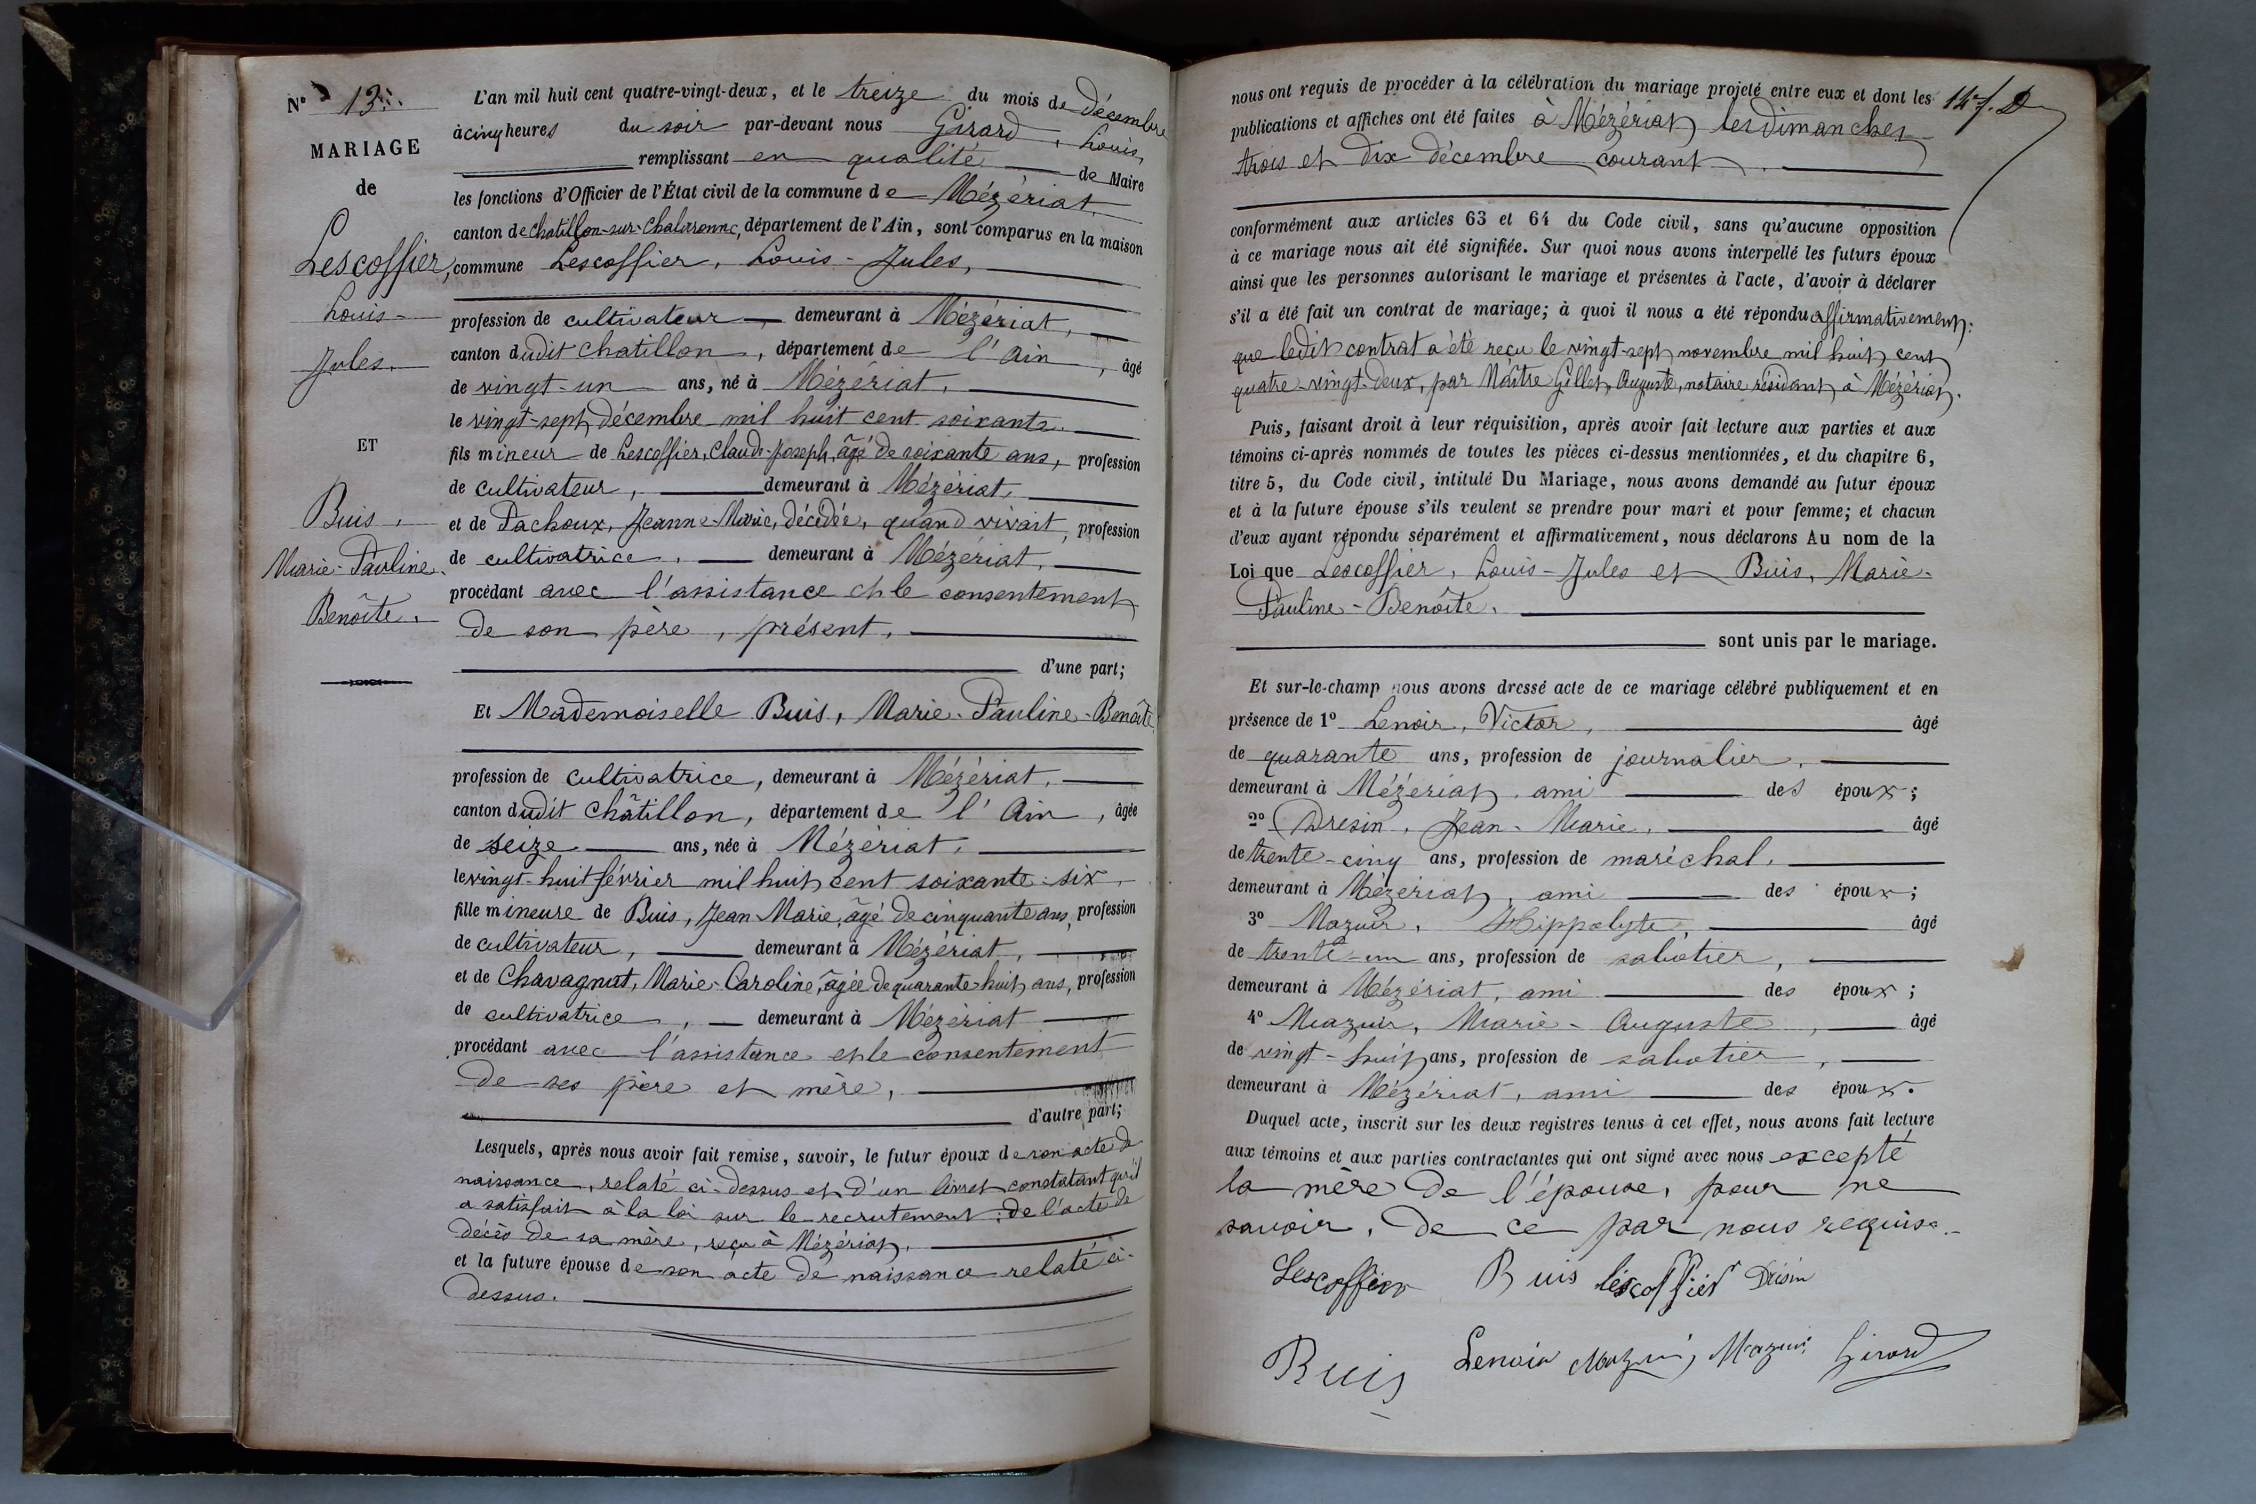 N° 13.
MARIAGE
de
Lescoffier,
Louis-
Jules.
ET
Buis,
Marie-Pauline
Benôite.
L'an mil huit cent quatre-vingt-deux, et le treize du mois de Décembre
à cinq heures du soir par-devant nous Girard, Louis,
remplissant en qualité de Maire
les fonctions d'Officier de l'État civil de la commune de Mézériat,
canton de Chatillon-sur-Chalaronne, département de l'Ain, sont comparus en la maison
commune Lescoffier, Louis-Jules,
profession de cultivateur, demeurant à Mézériat,
canton dudit Chatillon, département de l'Ain, âgé
de vingt-un ans, né à Mézériat,
le vingt-sept Décembre mil huit cent soixante.
fils mineur de Lescoffier, Claude-Joseph, âgé de soixante ans, profession
de cultivateur, demeurant à Mézériat,
et de Pachoux, Jeanne-Marie, décédée, quand vivait, profession
de cultivatrice, demeurant à Mézériat,
procédant avec l'assistance et le consentement
de son père, présent,
d'une part;
Et Mademoiselle Buis, Marie-Pauline-Benôite
profession de cultivatrice, demeurant à Mézériat,
canton dudit Châtillon, département de l'Ain, âgée
de seize ans, née à Mézériat,
le vingt-huit février mil huit cent soixante-six
fille mineure de Buis, Jean Marie, âgé de cinquante ans, profession
de cultivateur, demeurant à Mézériat,
et de Chavagnat, Marie-Caroline, âgée de quarante huit ans, profession
de cultivatrice, demeurant à Mézériat
procédant avec l'assistance et le consentement
de ses père et mère,
d'autre part;
Lesquels, après nous avoir fait remise, savoir, le futur époux de son acte de
naissance, relaté ci-dessus et d'un livret constatant qu'il
a satisfait à la loi sur le recrutement; de l'acte de
décès de sa mère, reçu à Mézériat,
et la future épouse de son acte de naissance relaté ci-
dessus.
147. D
nous ont requis de procéder à la célébration du mariage projeté entre eux et dont les
publications et affiches ont été faites à Mézériat les dimanches
trois et dix décembre courant.
conformément aux articles 63 et 64 du Code civil, sans qu'aucune opposition
à ce mariage nous ait été signifiée. Sur quoi nous avons interpellé les futurs époux
ainsi que les personnes autorisant le mariage et présentes à l'acte, d'avoir à déclarer
s'il a été fait un contrat de mariage; à quoi il nous a été répondu affirmativement:
que ledit contrat a été reçu le vingt-sept novembre mil huit cent
quatre-vingt-deux, par Maître Gillet, Auguste, notaire résidant à Mézériat.
Puis, faisant droit à leur réquisition, après avoir fait lecture aux parties et aux
témoins ci-après nommés de toutes les pièces ci-dessus mentionnées, et du chapitre 6,
titre 5, du Code civil, intitulé Du Mariage, nous avons demandé au futur époux
et à la future épouse s'ils veulent se prendre pour mari et pour femme; et chacun
d'eux ayant répondu séparément et affirmativement, nous déclarons Au nom de la
Loi que Lescoffier, Louis-Jules et Buis, Marie-
Pauline-Benôite.
sont unis par le mariage.
Et sur-le-champ nous avons dressé acte de ce mariage célébré publiquement et en
présence de 1° Lenoir, Victor, âgé
de quarante ans, profession de journalier,
demeurant à Mézériat, ami des époux;
2° Dresin, Jean-Marie, âgé
de trente-cinq ans, profession de maréchal,
demeurant à Mézériat, ami des époux;
3° Mazuir, Hippolyte, âgé
de trente-un ans, profession de sabotier,
demeurant à Mézériat, ami des époux;
4° Mazuir, Marie-Auguste, âgé
de vingt-huit ans, profession de sabotier,
demeurant à Mézériat, ami des époux.
Duquel acte, inscrit sur les deux registres tenus à cet effet, nous avons fait lecture
aux témoins et aux parties contractantes qui ont signé avec nous excepté
la mère de l'épouse, pour ne
savoir, de ce par nous requise.
Lescoffier Buis lescoffier Drisin
Buis Lenoir Mazuir Mazuir Girard